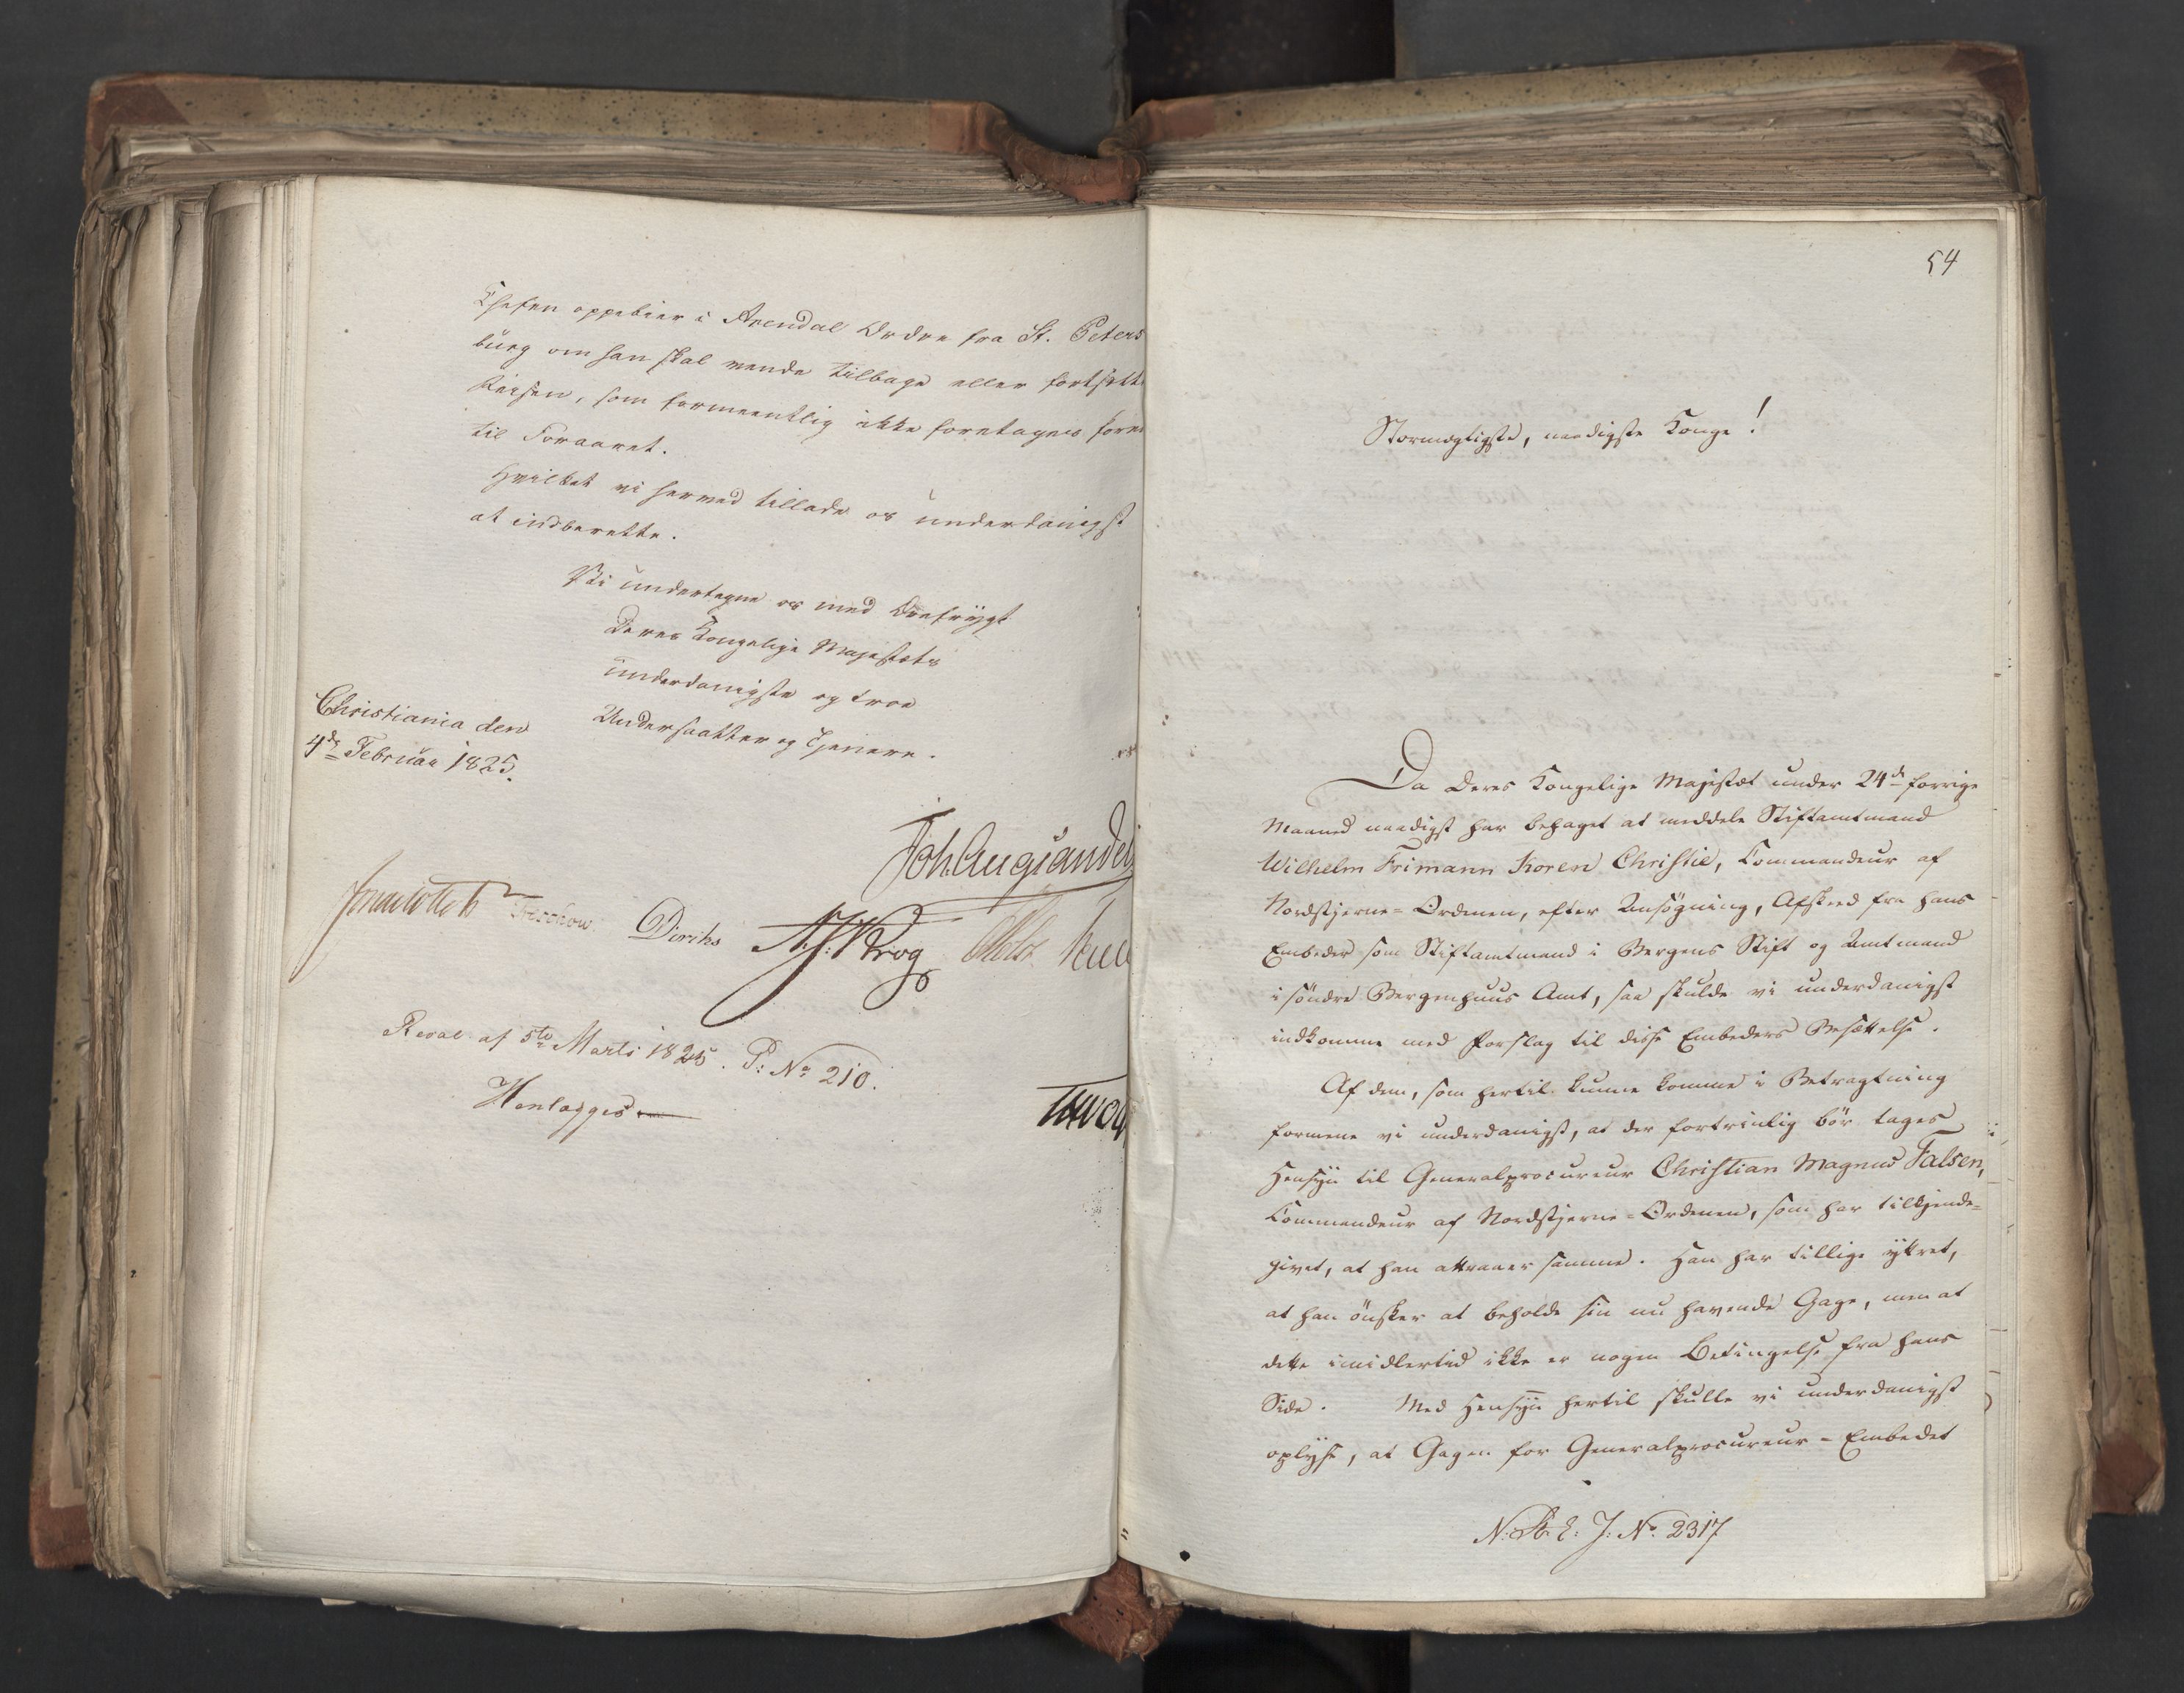 Chefen oppebier i Arendal Ordre fra St. Peters
burg om han skal vende tilbage eller fortsætte
Reisen, som formeentlig ikke foretages forend
til Foraaret.
Hvilket vi herved tillade os underdanigst
at indberette.
Vi undertegne os med Ærefrygt
Deres Kongelige Majestæts
underdanigste og troe
Undersaatter og Tjenere.
Christiania den
4de Februar 1825.
Joh. Aug. Sandel
Treschow Diriks
Krog
Resol. af 5te Marts 1825. P: No 210.
Henlægges
54
Stormægtigste, naadigste Konge!
Da Deres Kongelige Majestæt under 24de forrige
Maaned naadigst har behaget at meddele Stiftamtmand
Wilhelm Frimann Koren Christie, Commandeur af
Nordstjerne-Ordenen, efter Ansøgning, Afskeed fra hans
Embeder som Stiftamtmand i Bergens Stift og Amtmand
i söndre Bergenhuus Amt, saa skulde vi underdanigst
indkomme med Forslag til disse Embeders Besættelse.
Af dem, som hertil kunne komme i Betragtning
formene vi underdanigst, at der fortrinlig bör tages
Hensyn til Generalprocureur Christian Magnus Falsen,
Commandeur af Nordstjerne-Ordenen, som har tilkjende-
givet, at han attraaer samme. Han har tillige yttret,
at han önsker at beholde sin nu havende Gage, men at
dette imidlertid ikke er nogen Betingelse fra hans
Side. Med Hensyn hertil skulle vi underdanigst
oplyse, at Gagen for Generalprocureur-Embedet
N: St. E: J: No 2317